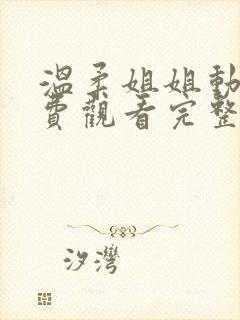 溫柔姐姐動
費觀看完整
汐灣